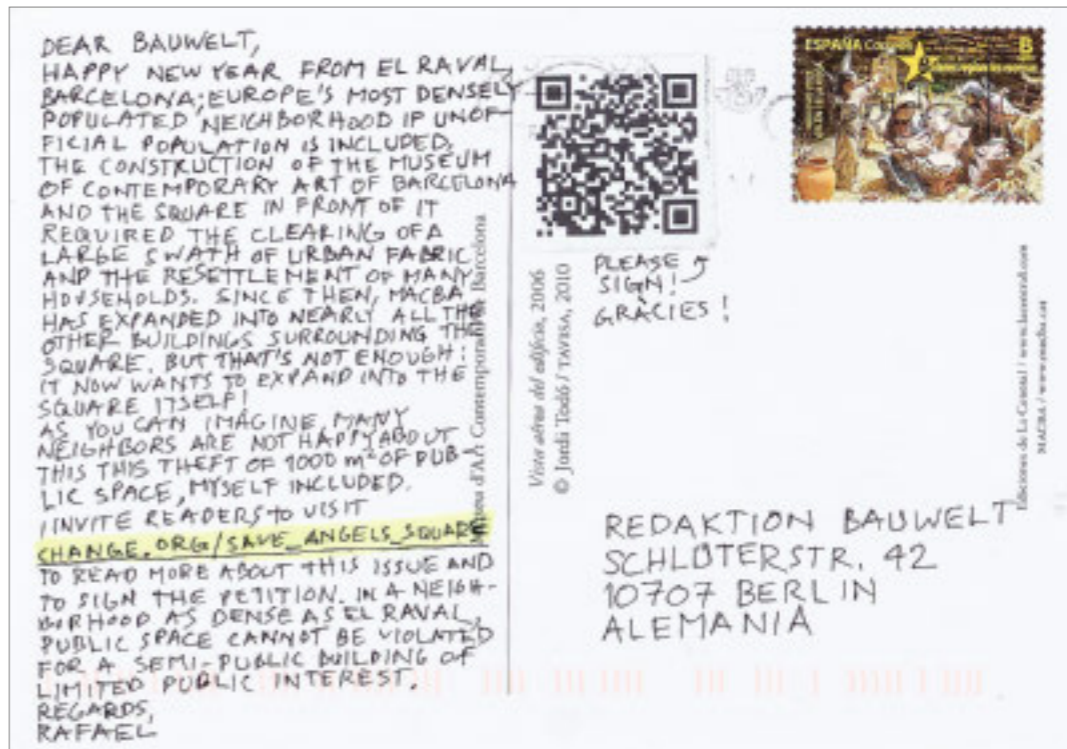 DEAR BAUWELT,
HAPPY NEW YEAR FROM EL RAVAL,
BARCELONA; EUROPE'S MOST DENSELY
POPULATED NEIGHBORHOOD IF UNOF-
FICIAL POPULATION IS INCLUDED.
THE CONSTRUCTION OF THE MUSEUM
OF CONTEMPORARY ART OF BARCELONA
AND THE SQUARE IN FRONT OF IT
REQUIRED THE CLEARING OF A
LARGE SWATH OF URBAN FABRIC
AND THE RESETTLEMENT OF MANY
HOUSEHOLDS. SINCE THEN, MACBA
HAS EXPANDED INTO NEARLY ALL THE
OTHER BUILDINGS SURROUNDING THE
SQUARE. BUT THAT'S NOT ENOUGH:
IT NOW WANTS TO EXPAND INTO THE
SQUARE ITSELF!
AS YOU CAN IMAGINE, MANY
NEIGHBORS ARE NOT HAPPY ABOUT
THIS THIS THEFT OF 1000 m² OF PUB-
LIC SPACE, MYSELF INCLUDED.
I INVITE READERS TO VISIT
CHANGE.ORG/SAVE_ANGELS_SQUARE
TO READ MORE ABOUT THIS ISSUE AND
TO SIGN THE PETITION. IN A NEIGH-
BORHOOD AS DENSE AS EL RAVAL,
PUBLIC SPACE CANNOT BE VIOLATED
FOR A SEMI-PUBLIC BUILDING OF
LIMITED PUBLIC INTEREST.
REGARDS,
RAFAEL
Museu d'Art Contemporani de Barcelona
Vista aérea del edificio, 2006
© Jordi Todó / TAVISA, 2010
PLEASE
SIGN!
GRÀCIES!
ESPAÑA Correos
B
REDAKTION BAUWELT
SCHLÜTERSTR. 42
10707 BERLIN
ALEMANIA
Ediciones de La Central / www.lacentral.com
MACBA / www.macba.cat